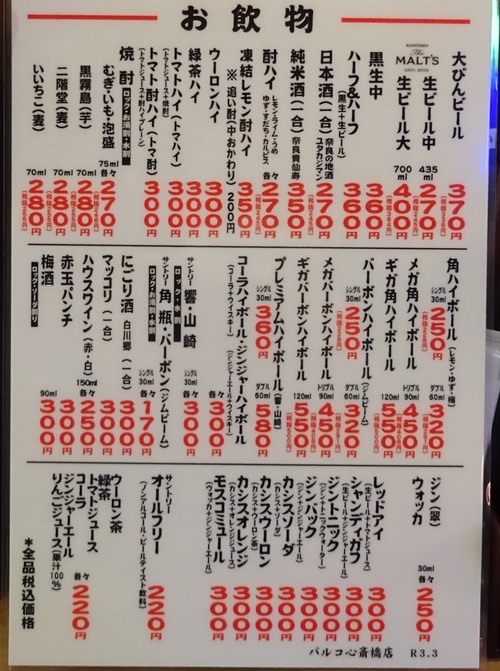 お飲物
大びんビール 370円
SUNTORY The MALT'S
生ビール中 435ml 270円
生ビール大 700ml 400円
黒生中 360円
ハーフ&ハーフ(黒生+生ビール) 360円
日本酒(一合) 奈良の地酒 270円
純米酒(一合) 奈良貴仙寿 350円
酎ハイ レモン・ライム・うめ ゆず・すだち・カルピス 各々 270円
凍結レモン酎ハイ 350円
※追い酎(中おかわり)200円
ウーロンハイ 300円
緑茶ハイ 300円
トマトハイ(トマハイ) 300円
トマト酎ハイ(トマ酎) 300円
焼酎 ロック・お湯割・水割
むぎ・いも・泡盛 75ml 各々 270円
黒霧島(芋) 70ml 280円
二階堂(麦) 70ml 280円
いいちこ(麦) 70ml 280円
角ハイボール(レモン・ゆず・梅) シングル 30ml 250円 ダブル 60ml 320円
メガ角ハイボール トリプル 90ml 450円
ギガ角ハイボール 120ml 550円
バーボンハイボール(ジムビーム) シングル 30ml 250円 ダブル 60ml 320円
メガバーボンハイボール トリプル 90ml 450円
ギガバーボンハイボール 120ml 550円
プレミアムハイボール(響・山崎) シングル 30ml 360円 ダブル 60ml 580円
コーラハイボール・ジンジャーハイボール
(コーラ+ウイスキー) (ジンジャーエール+ウイスキー) 各々 300円
サントリー 響・山崎 シングル 30ml 各々 300円
ロック・水割
サントリー 角瓶・バーボン(ジムビーム) シングル 30ml 各々 170円
ロック・お湯割・水割
にごり酒 白川郷(一合) 300円
マッコリ(一合) 300円
ハウスワイン(赤・白) 150ml 各々 250円
赤玉パンチ 300円
梅酒 ロック・ソーダ割り 90ml 300円
ジン(翠)
ウォッカ 30ml 各々 250円
レッドアイ(生ビール+トマトジュース) 300円
シャンディガフ(生ビール+ジンジャーエール) 300円
ジントニック 300円
ジンバック 300円
カシスソーダ(カシス+ソーダ) 300円
カシスウーロン(カシス+ウーロン茶) 300円
カシスオレンジ(カシス+オレンジジュース) 300円
モスコミュール(ウォッカ+ジンジャーエール) 300円
サントリー オールフリー(ノンアルコール・ビールテイスト飲料) 220円
ウーロン茶
緑茶
トマトジュース
コーラ
ジンジャーエール
りんごジュース(果汁100%) 各々 220円
*全品税込価格
パルコ心斎橋店 R3.3